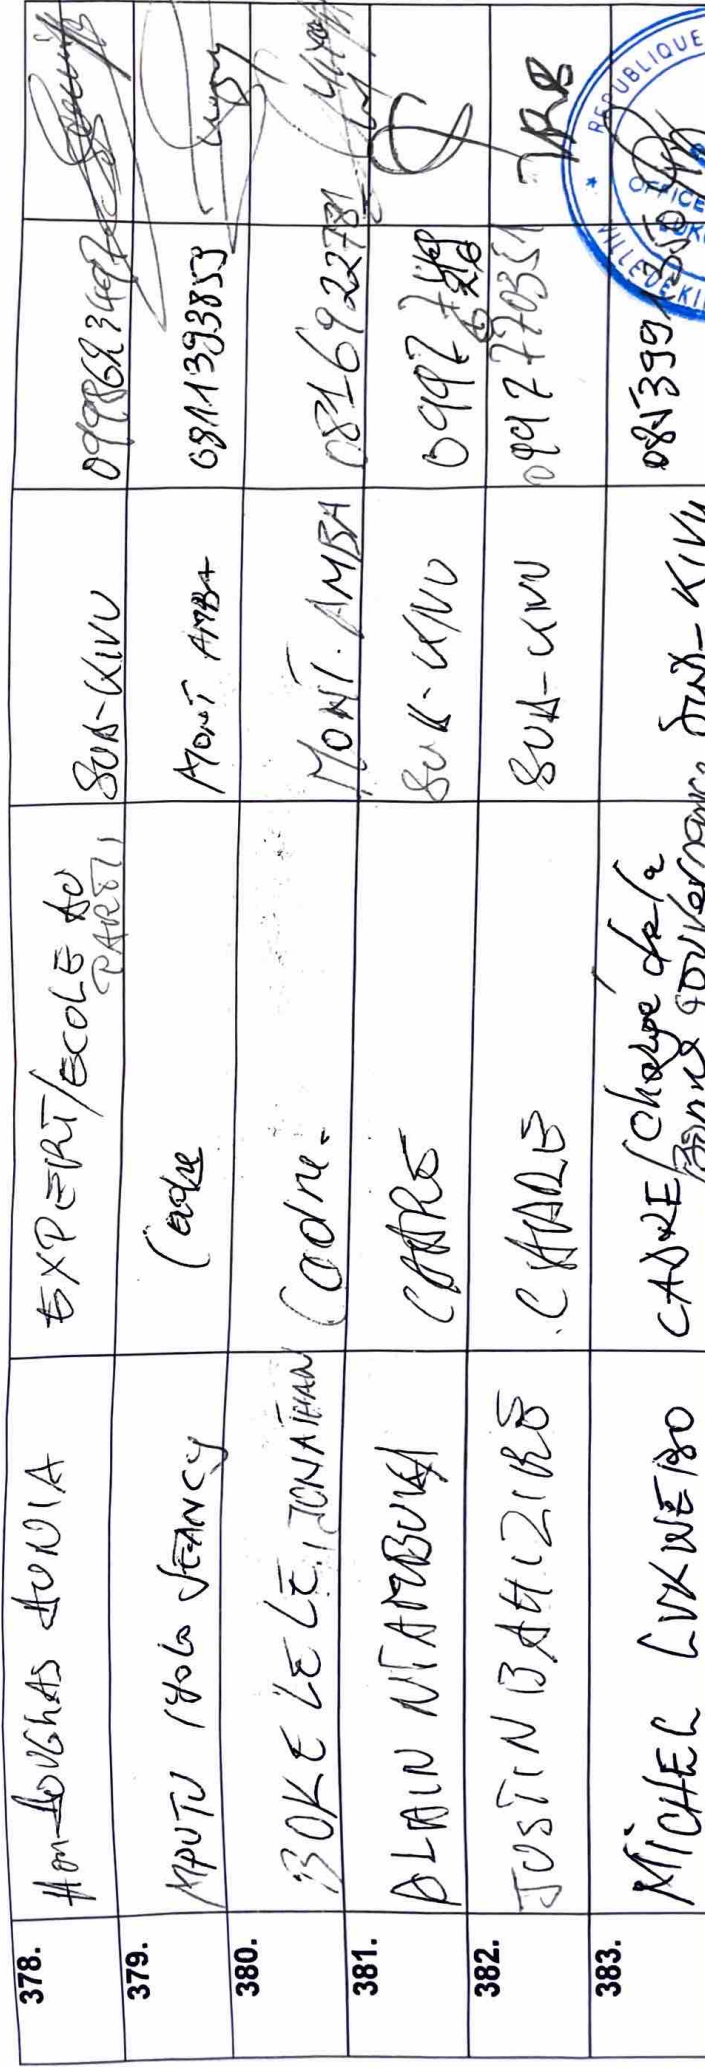 378. Hon. DOUGLAS DUNIA EXPERT/ECOLE DU PARTI SUD-KIVU
379. MPUTU JEANCY Cadre MONT AMBA 0811393853
380. BOKE LELE, JONATHAN Cadre. MONT. AMBA 0816922781
381. ALAIN NTAMBUKA CADRE SUD-KIVU
382. JUSTIN BAHIZIRE CADRE SUD-KIVU 0997770351
383. MICHEL LUKWEBO CADRE/Chargé de la Bonne gouvernance SUD-KIVU
REPUBLIQUE
OFFICE
VILLE DE KIN